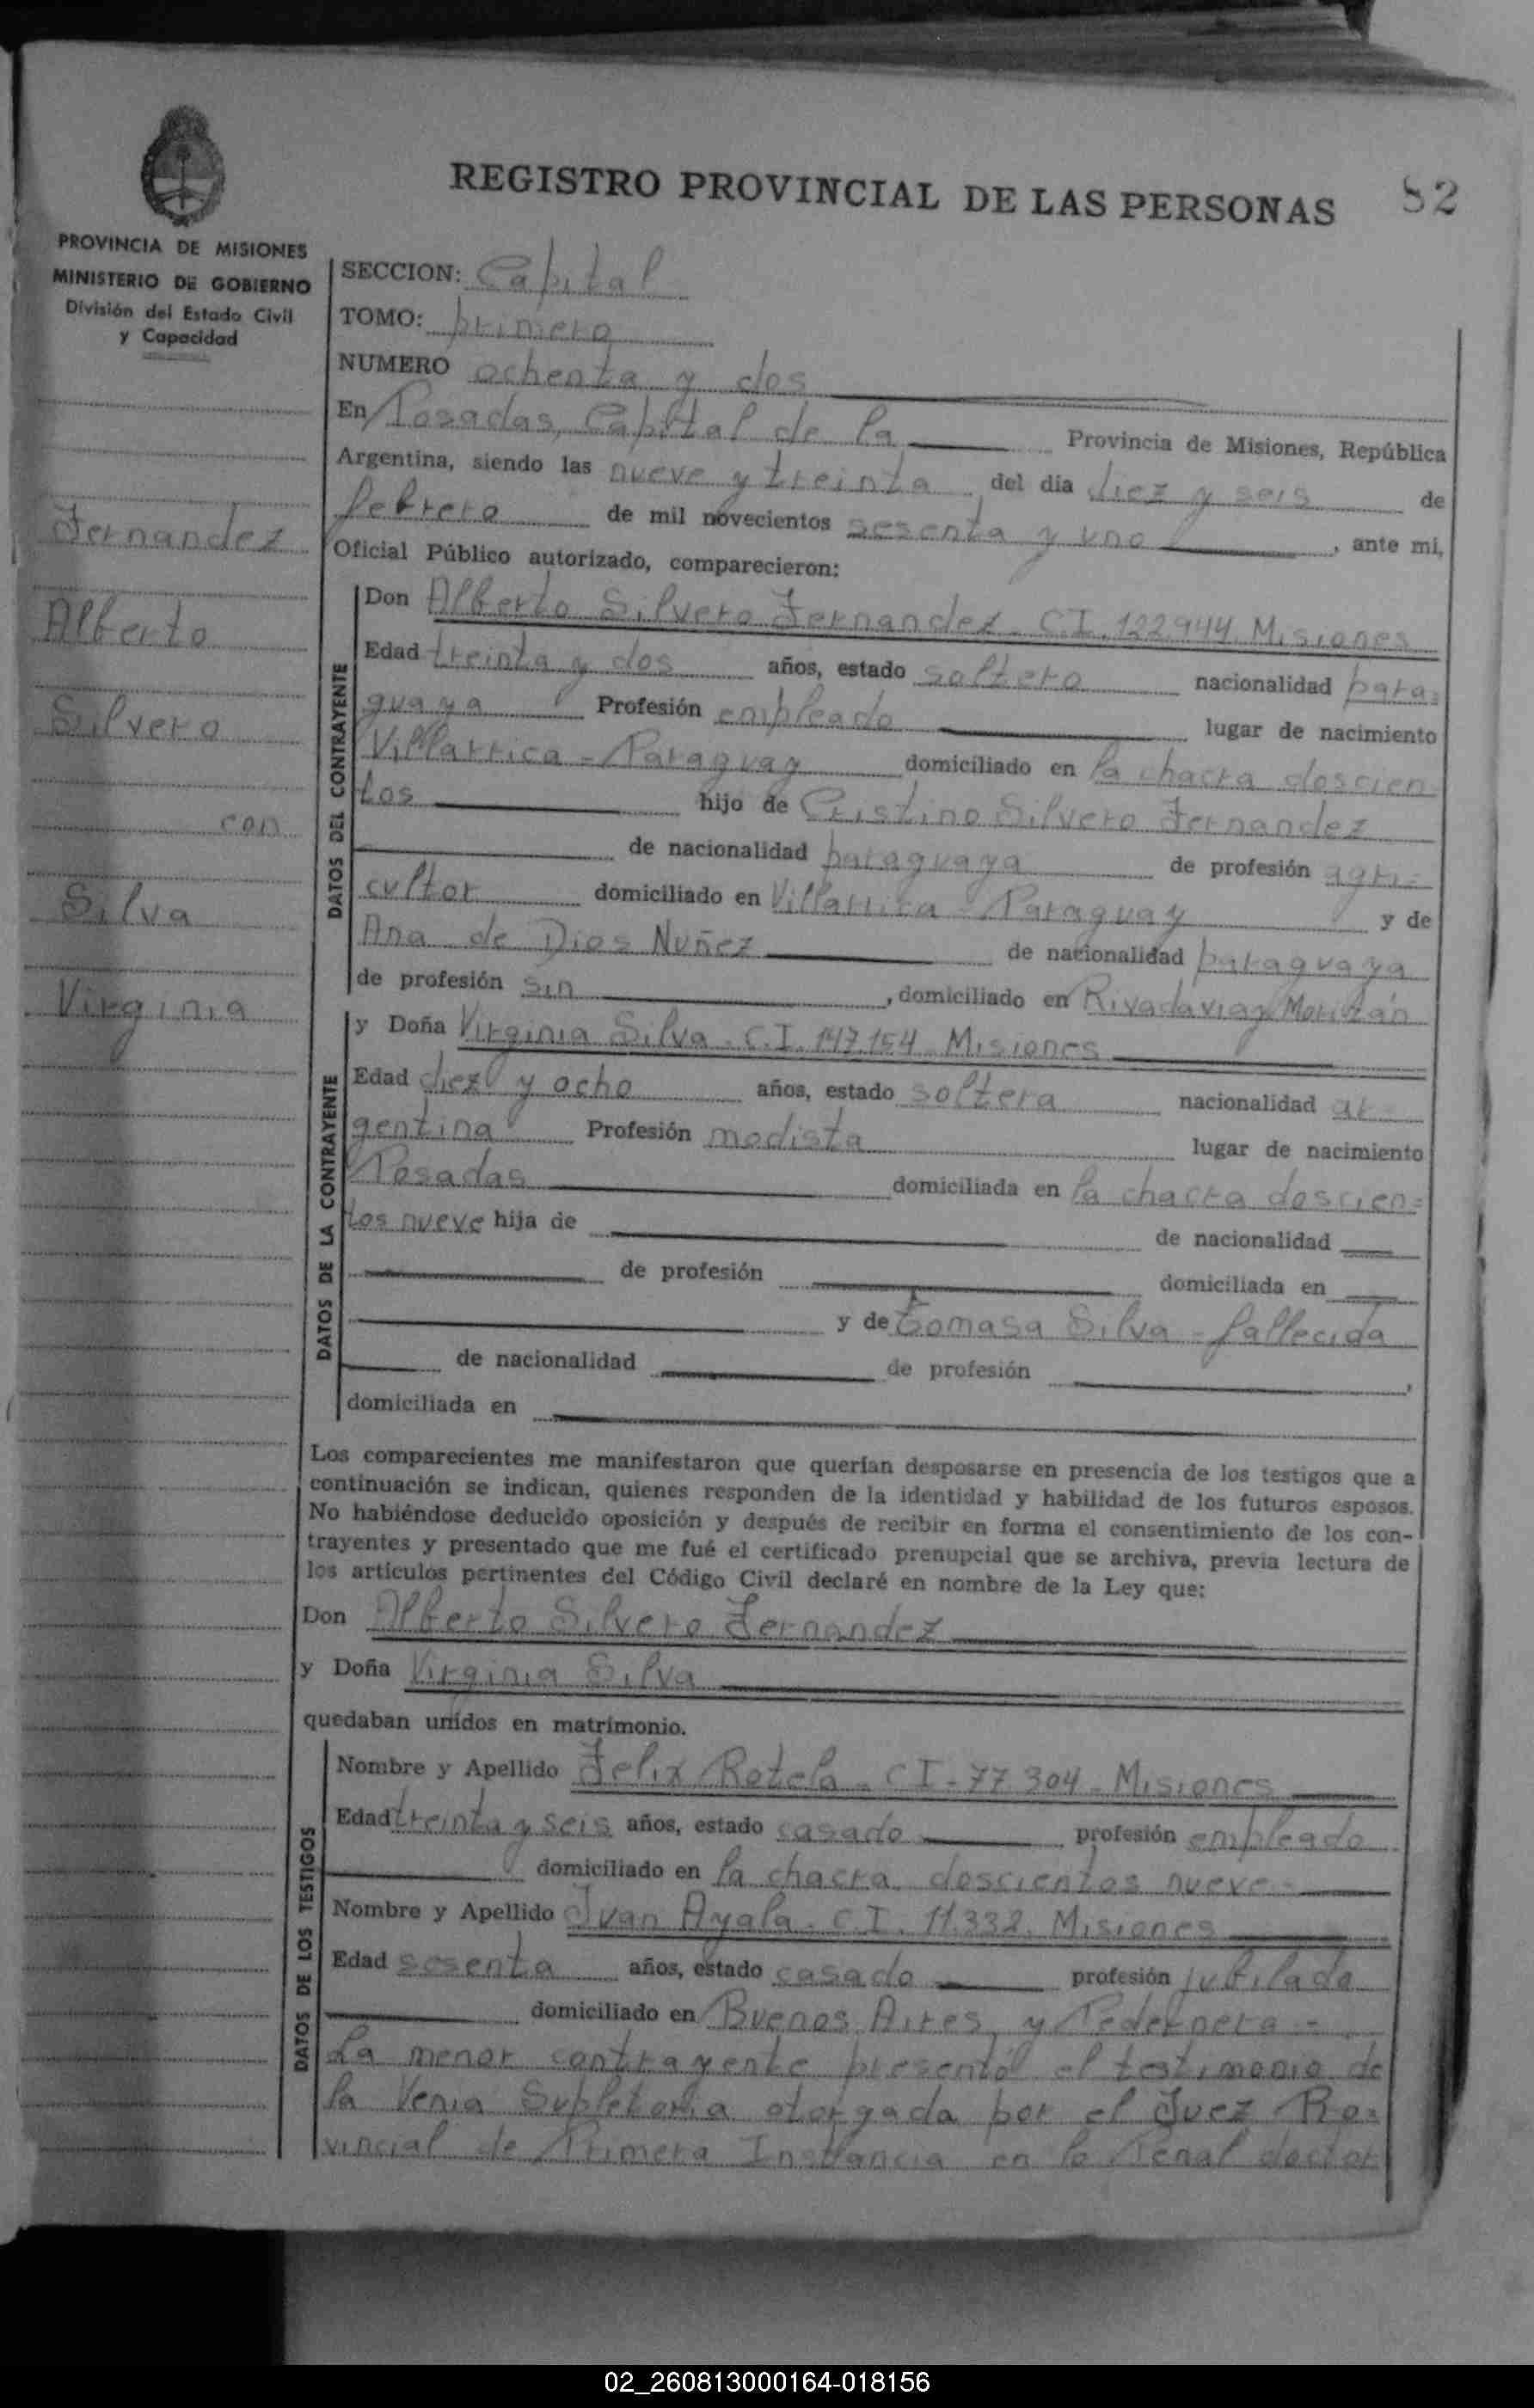 REGISTRO PROVINCIAL DE LAS PERSONAS 82
PROVINCIA DE MISIONES
MINISTERIO DE GOBIERNO
División del Estado Civil
y Capacidad
Fernandez
Alberto
Silvero
con
Silva
Virginia
SECCION: Capital
TOMO: primero
NUMERO ochenta y dos
En Posadas, Capital de la Provincia de Misiones, República
Argentina, siendo las nueve y treinta del día diez y seis de
febrero de mil novecientos sesenta y uno, ante mi,
Oficial Público autorizado, comparecieron:
DATOS DEL CONTRAYENTE
Don Alberto Silvero Fernandez - C.I. 122944 Misiones
Edad treinta y dos años, estado soltero nacionalidad para=
guaya Profesión empleado lugar de nacimiento
Villarrica - Paraguay domiciliado en la chacra doscien
tos hijo de Cristino Silvero Fernandez
de nacionalidad paraguaya de profesión agri=
cultor domiciliado en Villarrica - Paraguay y de
Ana de Dios Nuñez de nacionalidad paraguaya
de profesión sin, domiciliado en Rivadavia y
DATOS DE LA CONTRAYENTE
y Doña Virginia Silva - C.I. 147.154 - Misiones
Edad diez y ocho años, estado soltera nacionalidad ar-
gentina Profesión modista lugar de nacimiento
Posadas domiciliada en la chacra doscien=
tos nueve hija de de nacionalidad
de profesión domiciliada en
y de Tomasa Silva - fallecida
de nacionalidad de profesión ,
domiciliada en
Los comparecientes me manifestaron que querían desposarse en presencia de los testigos que a
continuación se indican, quienes responden de la identidad y habilidad de los futuros esposos.
No habiéndose deducido oposición y después de recibir en forma el consentimiento de los con-
trayentes y presentado que me fué el certificado prenupcial que se archiva, previa lectura de
los artículos pertinentes del Código Civil declaré en nombre de la Ley que:
Don Alberto Silvero Fernandez
y Doña Virginia Silva
quedaban unidos en matrimonio.
DATOS DE LOS TESTIGOS
Nombre y Apellido Felix Rotela - CI - 77304 - Misiones
Edad treinta y seis años, estado casado profesión empleado
domiciliado en la chacra doscientos nueve -
Nombre y Apellido Juan Ayala - C.I. 11.332. Misiones
Edad sesenta años, estado casado profesión jubilado
domiciliado en Buenos Aires y Pedernera -
La menor contrayente presentó el testimonio de
la Venia Supletoria otorgada por el Juez Pro=
vincial de Primera Instancia en lo Penal doctor
02_260813000164-018156